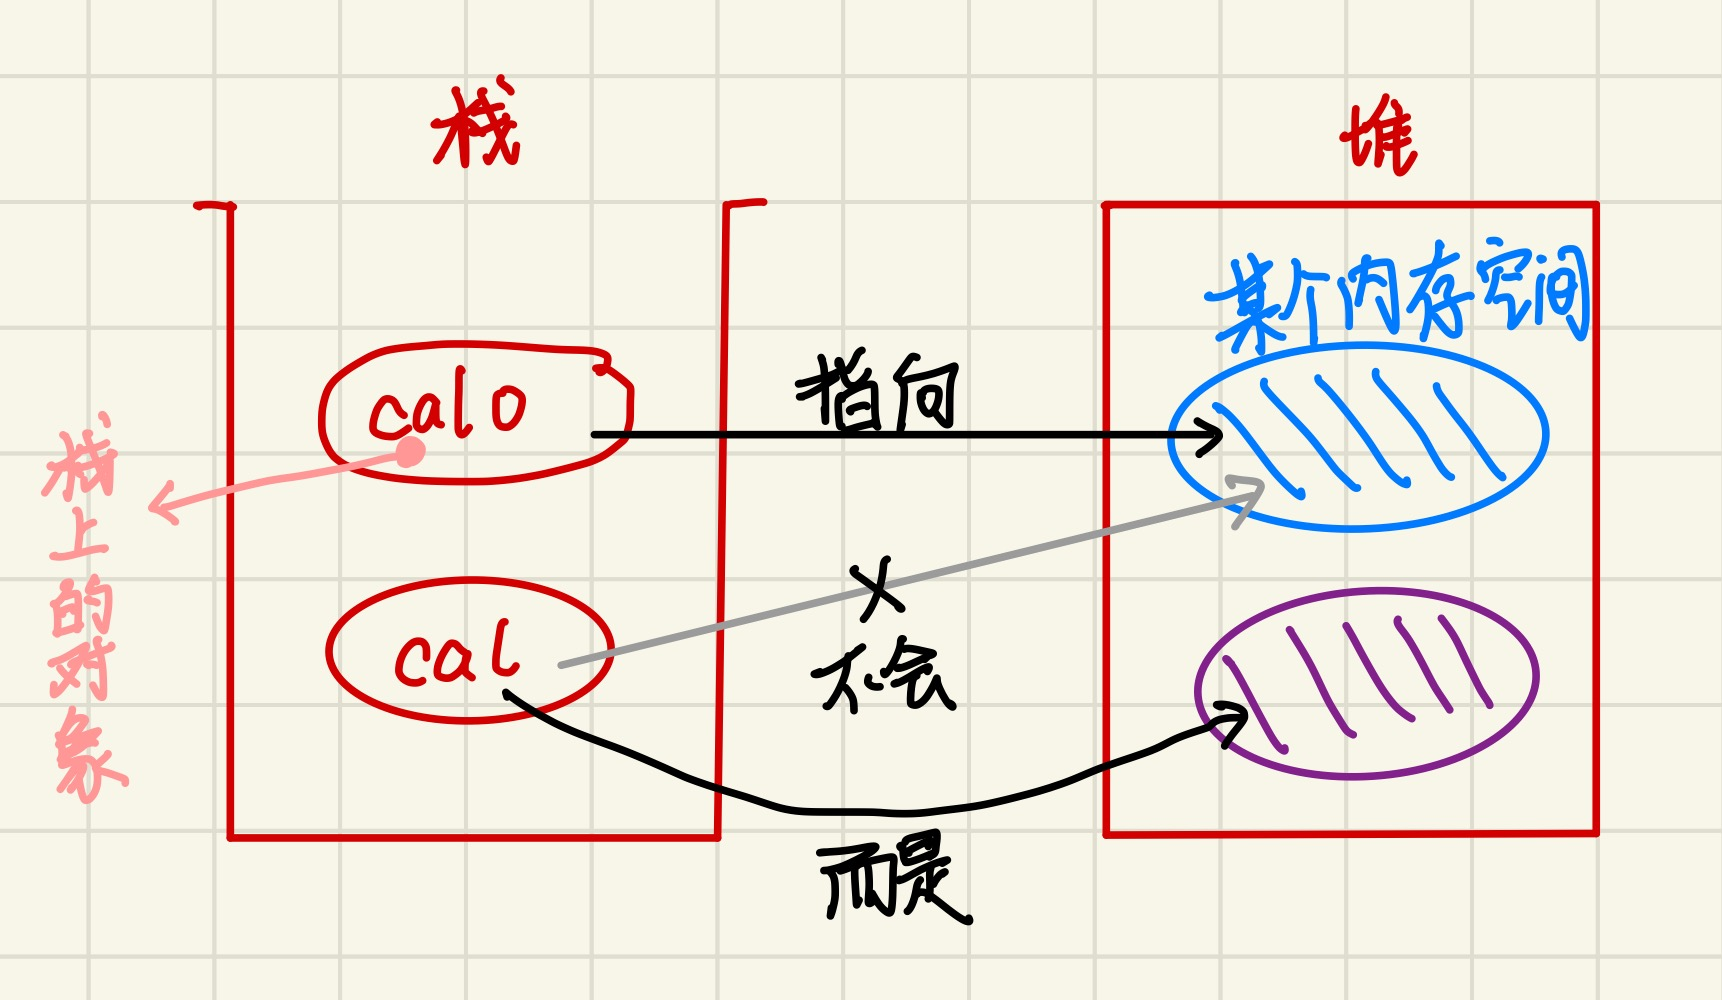 栈
堆
某个内存空间
cal0
指向
栈上的对象
cal
不会
而是